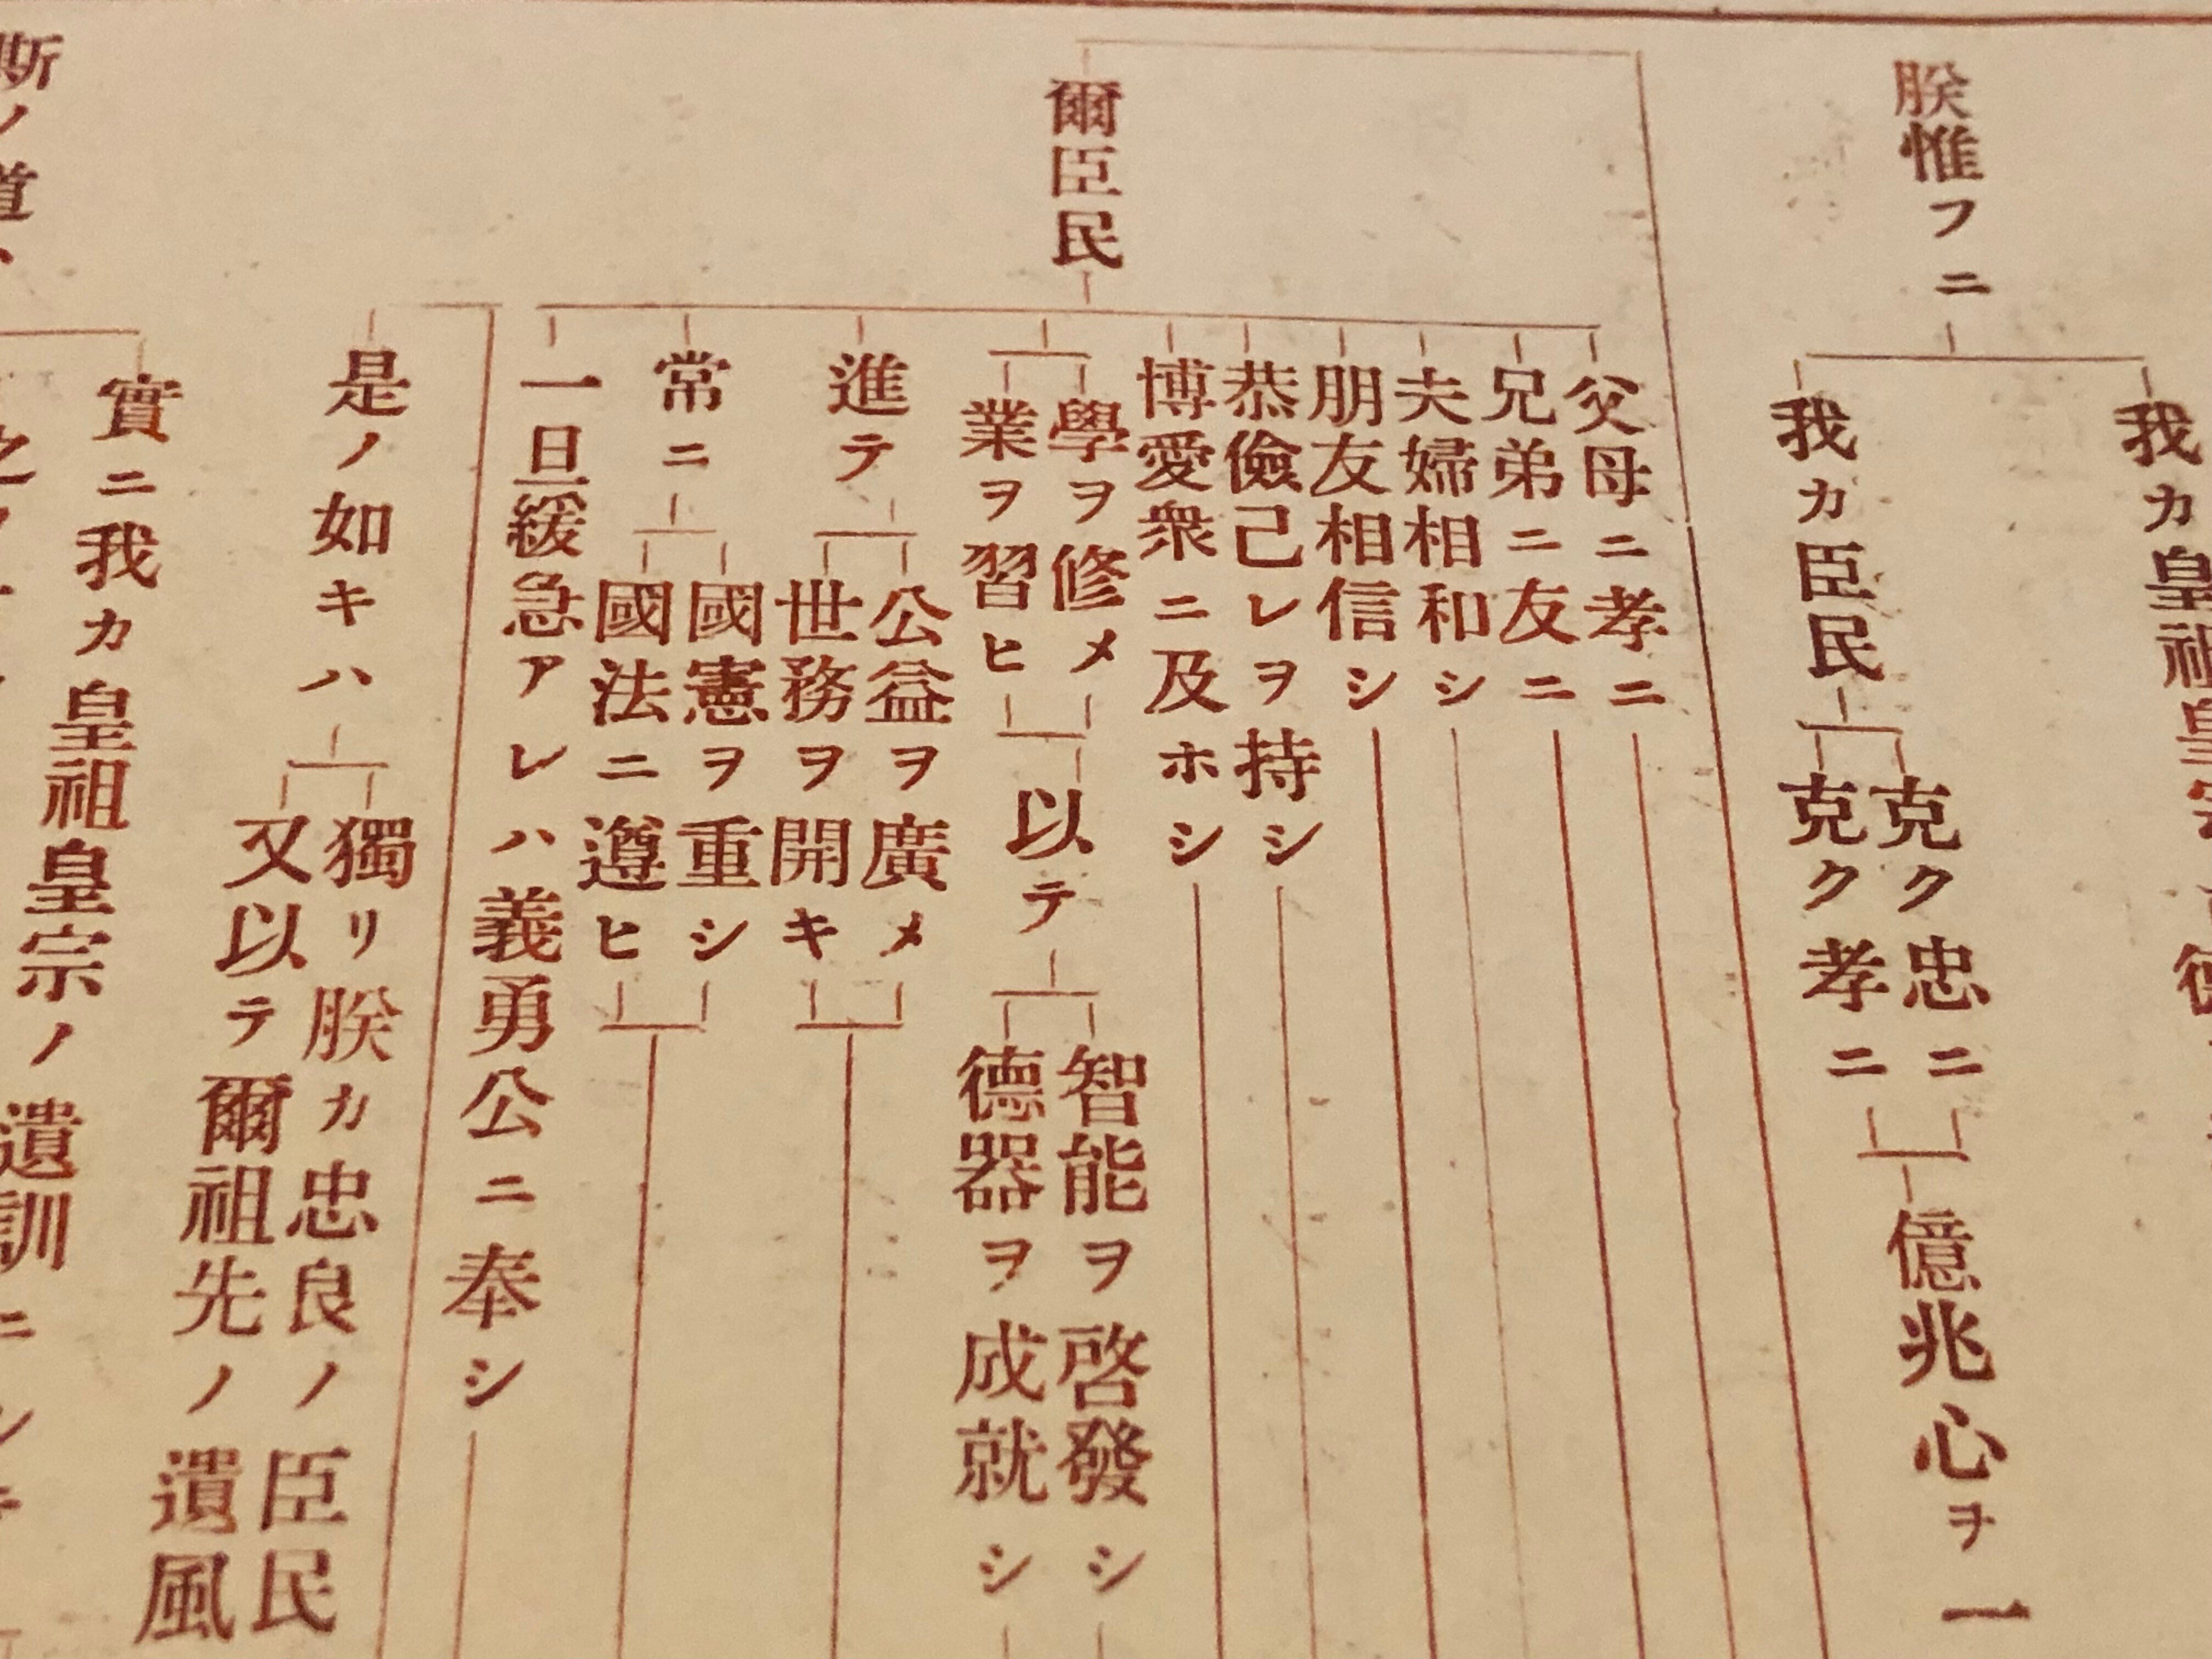 朕惟フニ
我カ皇祖皇宗
我カ臣民
克ク忠ニ
克ク孝ニ
億兆心ヲ一
爾臣民
父母ニ孝ニ
兄弟ニ友ニ
夫婦相和シ
朋友相信シ
恭儉己レヲ持シ
博愛衆ニ及ホシ
學ヲ修メ
業ヲ習ヒ
以テ
智能ヲ啓發シ
德器ヲ成就シ
進テ
公益ヲ廣メ
世務ヲ開キ
常ニ
國憲ヲ重シ
國法ニ遵ヒ
一旦緩急アレハ義勇公ニ奉シ
是ノ如キハ
獨リ朕カ忠良ノ臣民
又以テ爾祖先ノ遺風
斯ノ道ハ
實ニ我カ皇祖皇宗ノ遺訓ニシテ